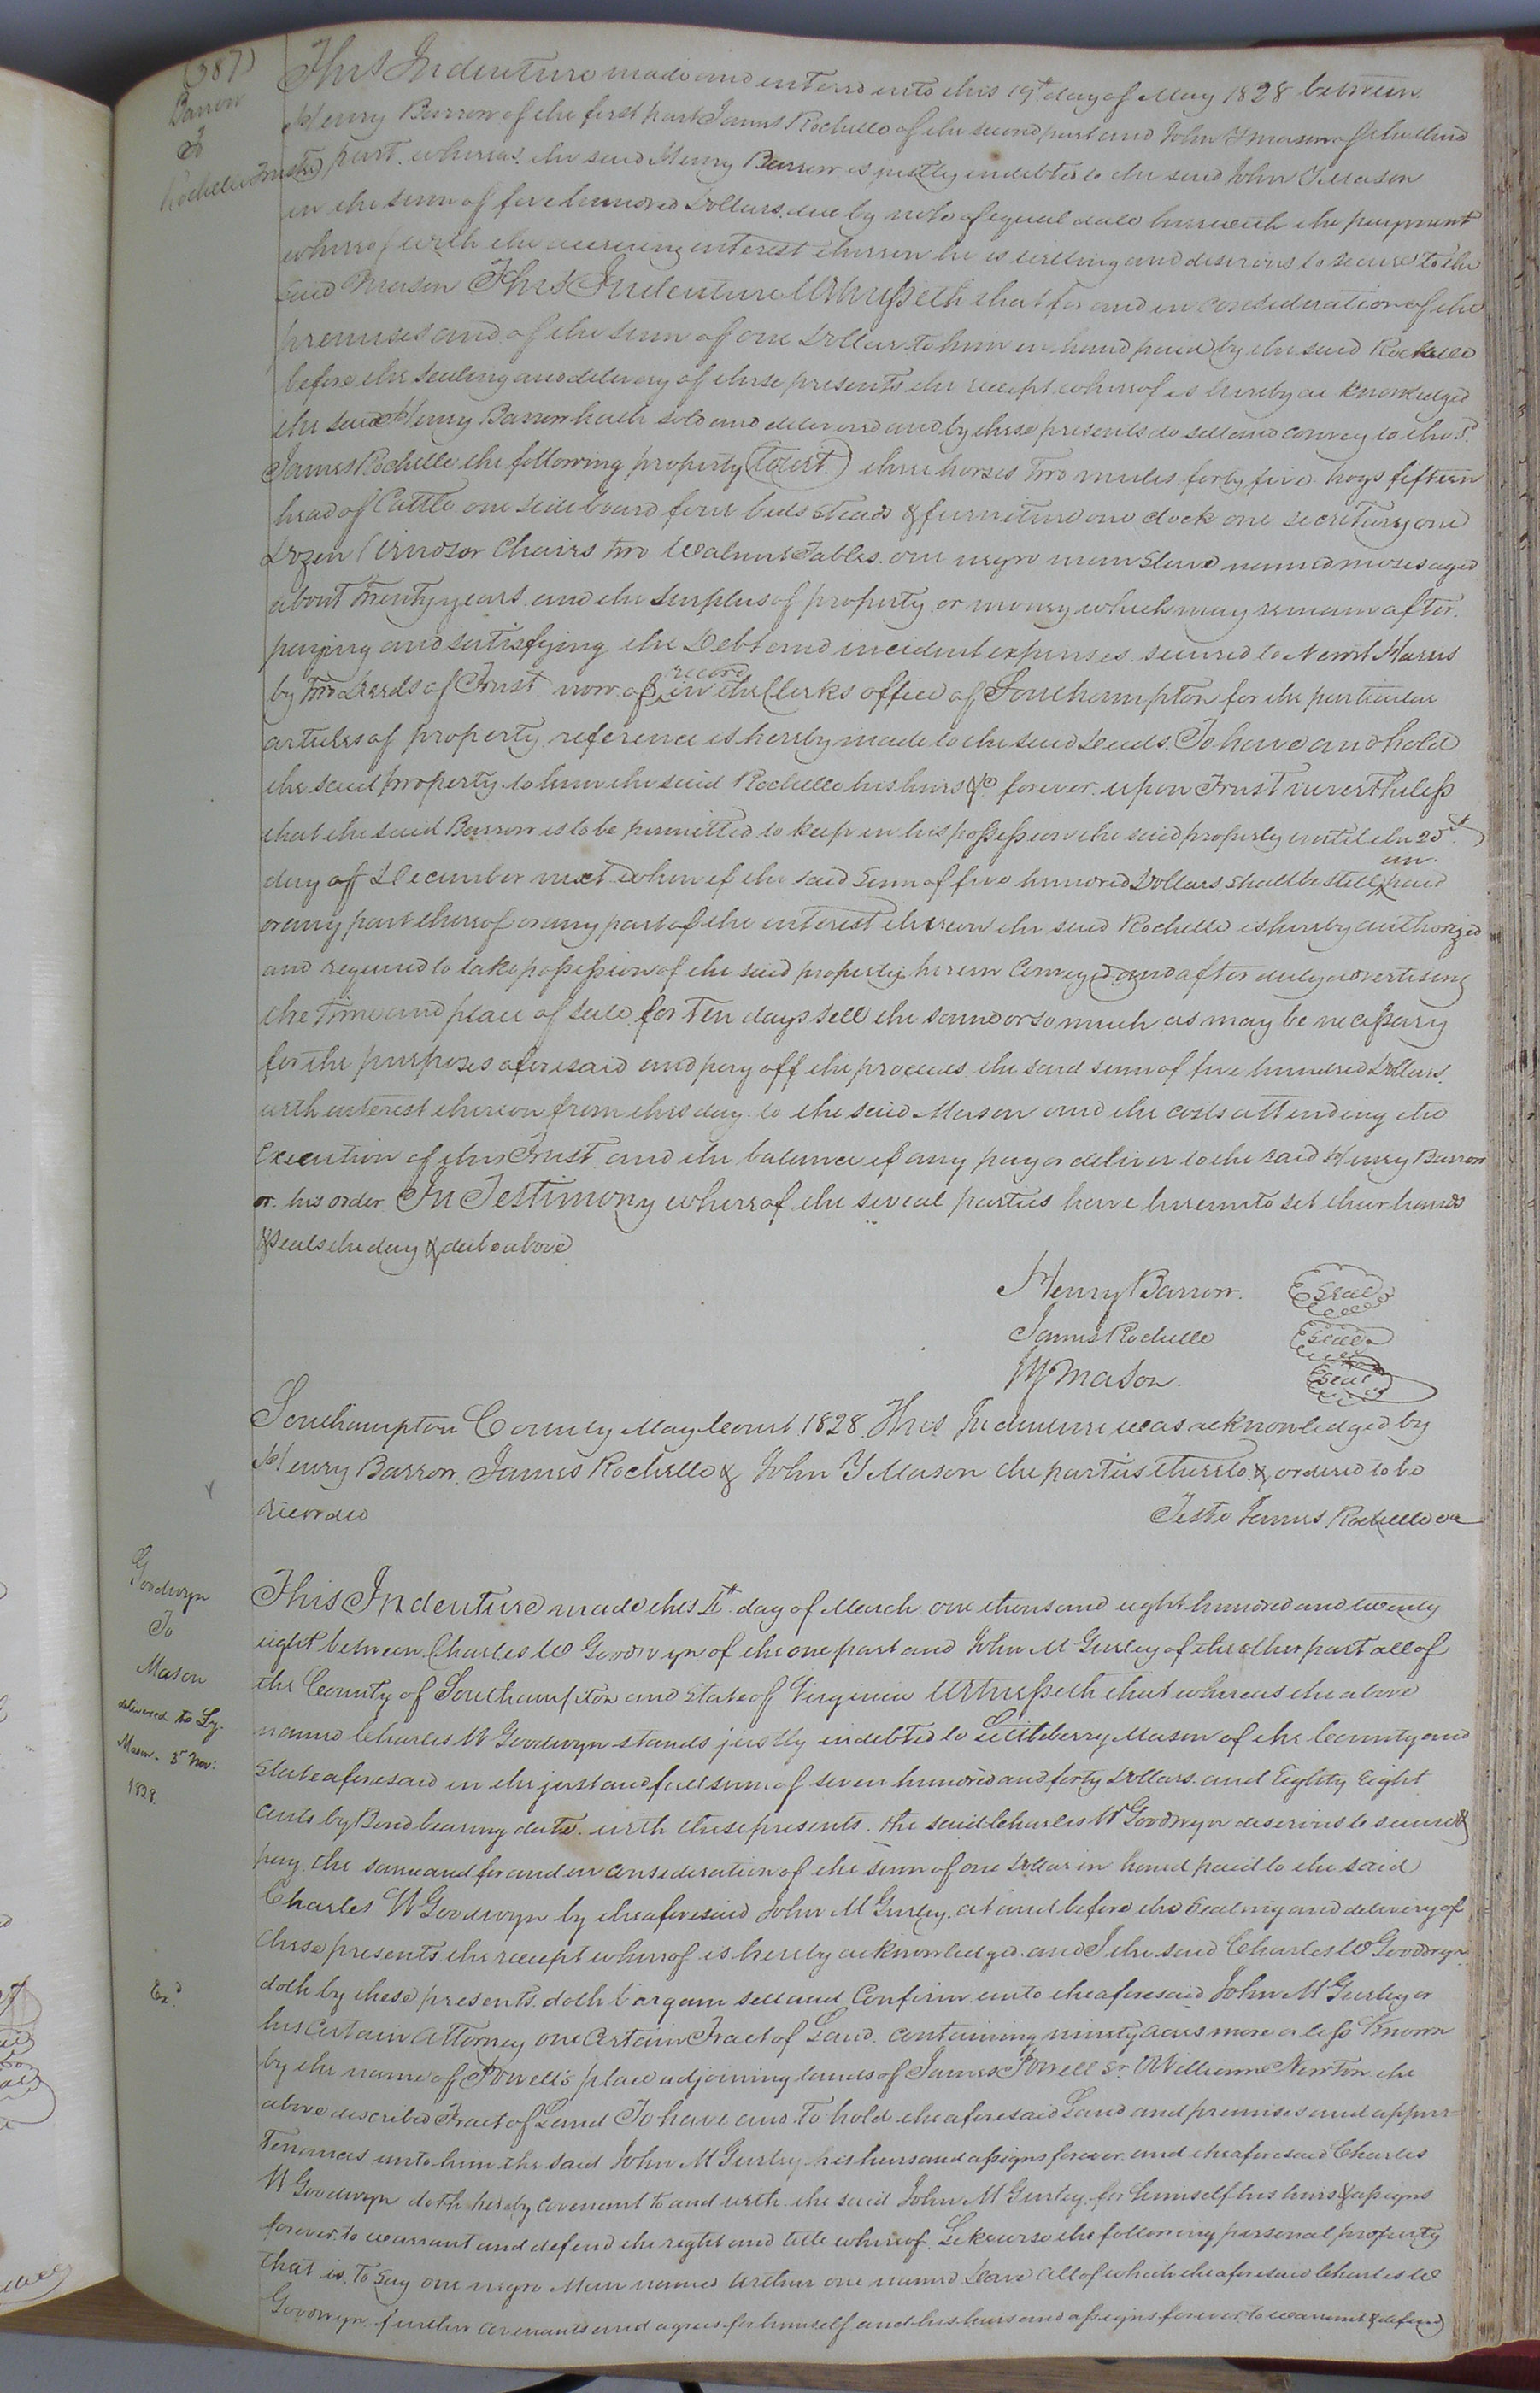 (387)
Barrow
To
Rochelle Trustee
This Indenture made and entered into this 19th day of May 1828 between
Henry Barrow of the first part James Rochelle of the second part and John Y Mason of the third
part. whereas. the said Henry Barrow is justly indebted to the said John Y Mason
in the sum of five hundred Dollars. due by note of equal date herewith the payment
whereof with the accruing interest thereon he is willing and desirous to secure to the
said Mason This Indenture Witnesseth that for and in consideration of the
premises and of the sum of one Dollar to him in hand paid by the said Rochelle
before the sealing and delivery of these presents the receipt whereof is hereby acknowledged
the said Henry Barrow hath sold and delivered and by these presents do sell and convey to the sd
James Rochelle the following property (towit.) three horses two mules forty five hogs fifteen
head of Cattle one sideboard four beds steads & furniture one clock one secretary one
Dozen Windsor Chairs two Walnut Tables. one negro man Slave named moses aged
about twenty years. and the surplus of property or money which may remain after.
paying and satisfying the Debt and incident expenses. secured to Newit Harris
by two Deeds of Trust now of record in the Clerks office of Southampton for the particular
articles of property reference is hereby made to the said Deeds. To have and hold
the said property to him the said Rochelle his heirs &c forever. upon Trust nevertheless
that the said Barrow is to be permitted to keep in his possession the said property until the 25th
day of December next when if the said sum of five hundred Dollars. shall be still unpaid
or any part thereof or any part of the interest thereon the said Rochelle is hereby authorized
and required to take possession of the said property herein Conveyed and after duly advertising
the time and place of sale for Ten days sell the same or so much as may be necessary
for the purposes aforesaid and pay off the proceeds the said sum of five hundred Dollars.
with interest thereon from this day to the said Mason and the costs attending the
Execution of this Trust and the balance if any pay or deliver to the said Henry Barrow
or his order In Testimony whereof the several parties have hereunto set their hands
& seals the day & date above
Henry Barrow. Seal
James Rochelle Seal
JY Mason. Seal
Southampton County May Court 1828. This Indenture was acknowledged by
Henry Barrow. James Rochelle & John Y Mason the parties thereto & ordered to be
recorded
Teste James Rochelle
Goodwyn
To
Mason
delivered to Ly.
Mason. 3d Nov:
1828.
Exd
This Indenture made this day of March one thousand eight hundred and twenty
eight between Charles W Goodwyn of the one part and John M Gurley of the other part all of
the County of Southampton and State of Virginia Witnesseth that whereas the above
named Charles W Goodwyn stands justly indebted to Littleberry Mason of the County and
State aforesaid in the just and full sum of seven hundred and forty Dollars. and Eighty Eight
cents by Bond bearing date. with these presents. the said Charles W Goodwyn desirous to secure &
pay. the same and for and in consideration of the sum of one Dollar in hand paid to the said
Charles W Goodwyn by the aforesaid John M Gurley. at and before the Sealing and delivery of
these presents the receipt whereof is hereby acknowledged. and I the said Charles W Goodwyn
doth by these presents. doth bargain sell and Confirm unto the aforesaid John M Gurley or
his certain attorney one certain Tract of Land. containing ninety acres more or less known
by the name of Powell's place adjoining lands of James Powell Sr. William Newton the
above described Tract of Land To have and To hold the aforesaid Land and premises and appur=
tenances unto him the said John M Gurley his heirs and assigns forever. and the aforesaid Charles
W Goodwyn doth hereby covenant to and with the said John M Gurley. for himself his heirs & assigns
forever. to warrant and defend the right and title whereof. Likewise the following personal property
that is. To Say one negro Man named Arthur one named all of which the aforesaid Charles W
Goodwyn. further covenants and agrees for himself and his heirs and assigns forever. to warrant & defend